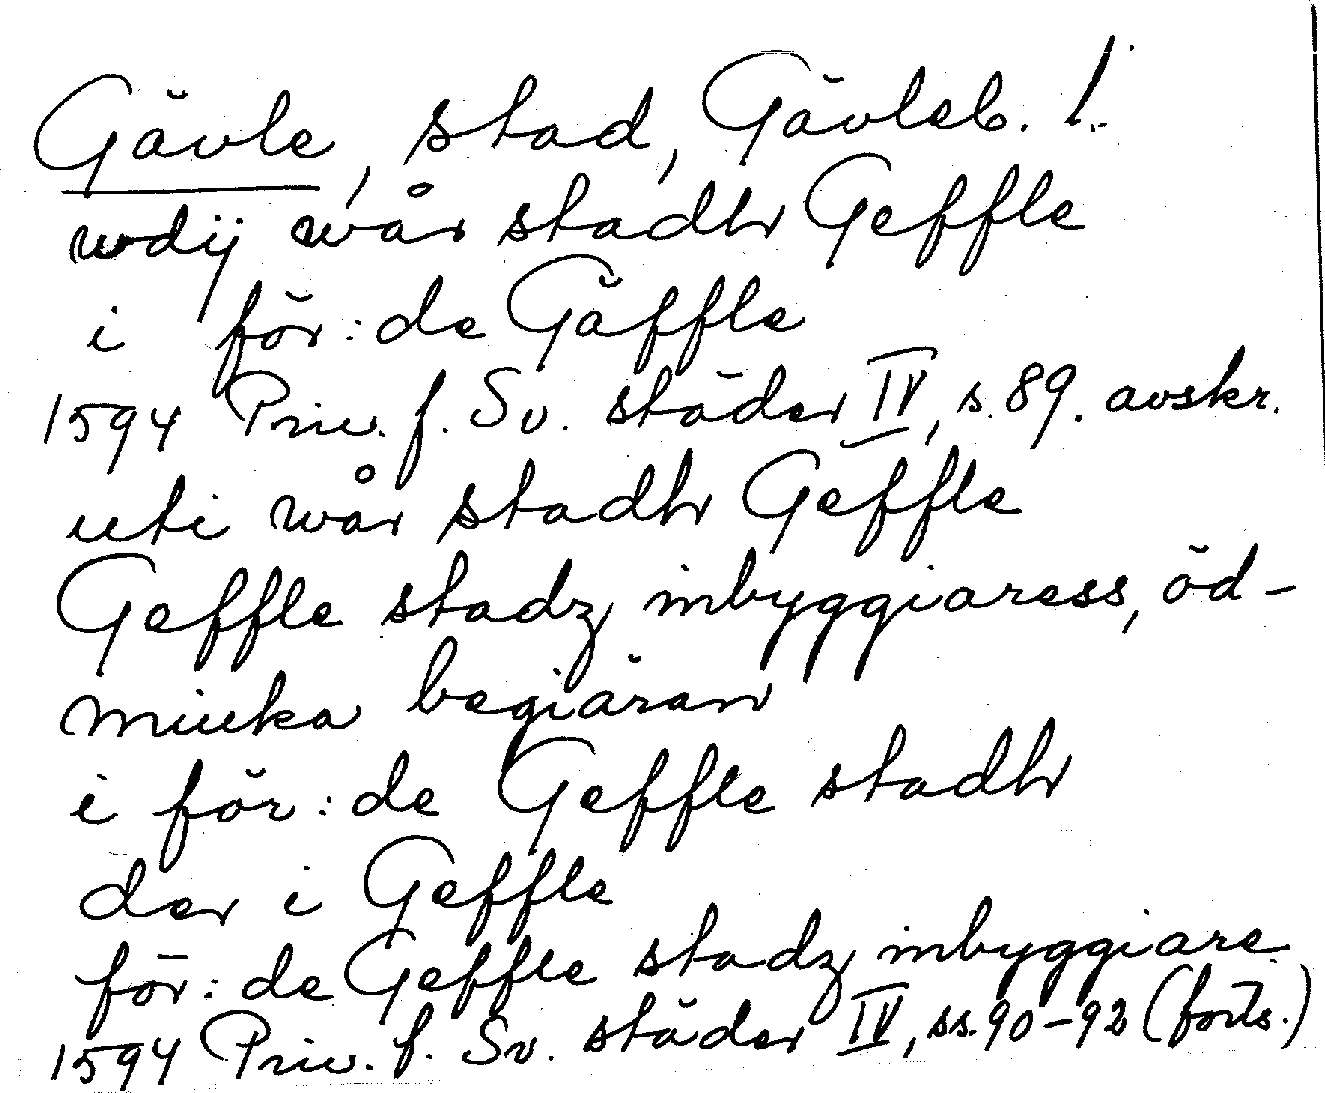 Gävle, stad, Gävleb. l.
wdij wår stadh Geffle
i för:de Gäffle
1594 Priv. f. Sv. städer IV, s. 89. avskr.
uti wår stadh Geffle
Geffle stadz inbyggiaress, öd-
miuka begiäran
i för:de Geffle stadh
der i Geffle
för:de Geffle stadz inbyggiare
1594 Priv. f. Sv. städer IV, ss. 90-92 (forts.)